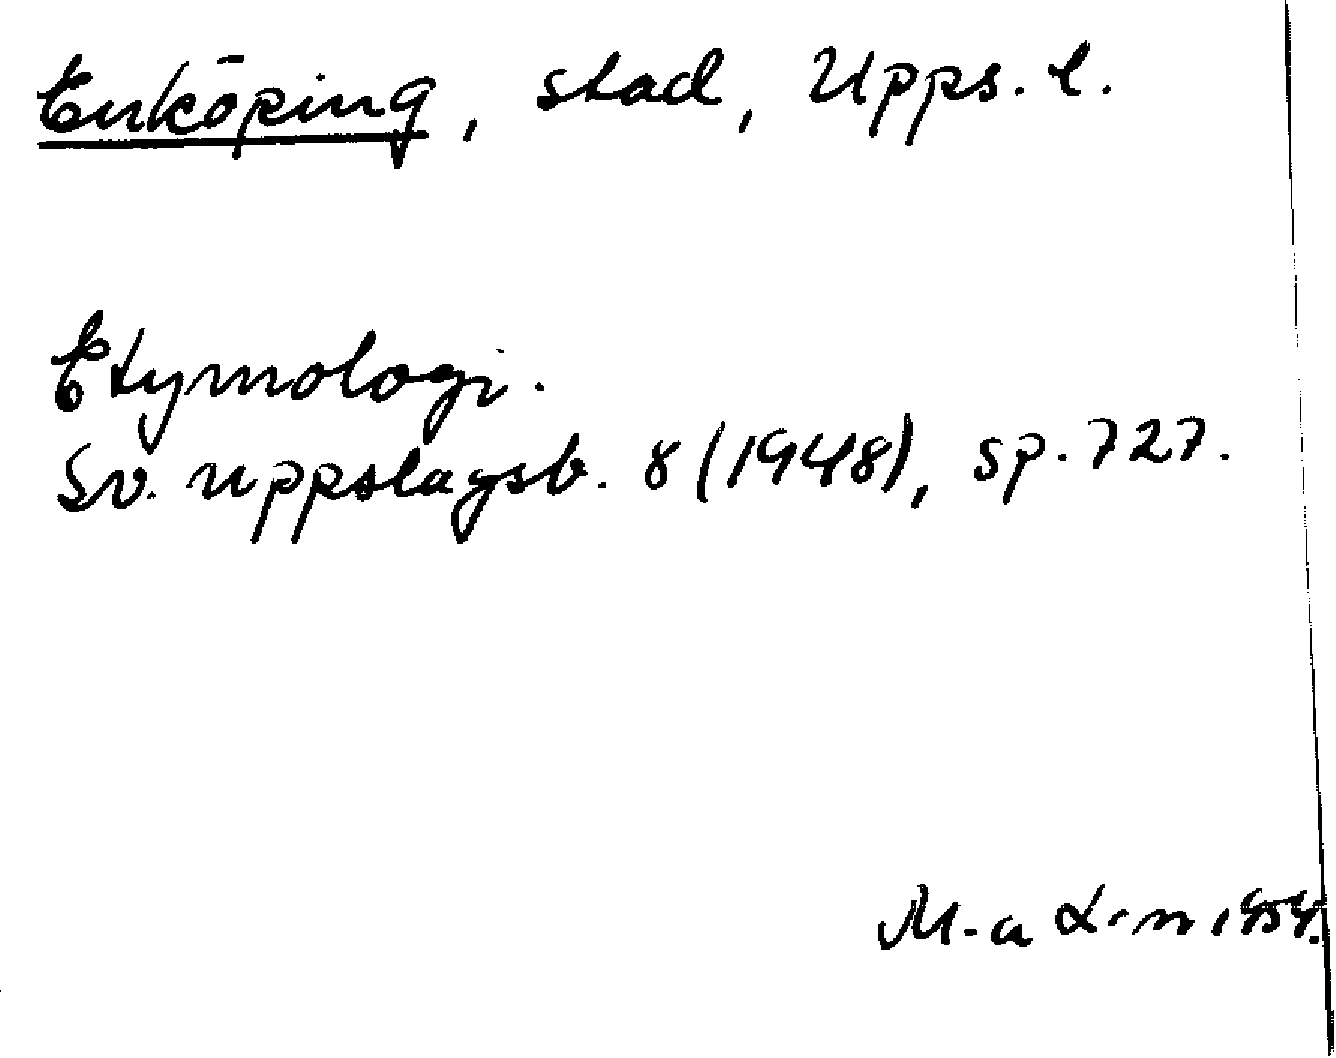 Enköping, stad, Upps. l.
Etymologi.
Sv. uppslagsb. 8 (1948), sp. 727.
M-a L-n 1954.